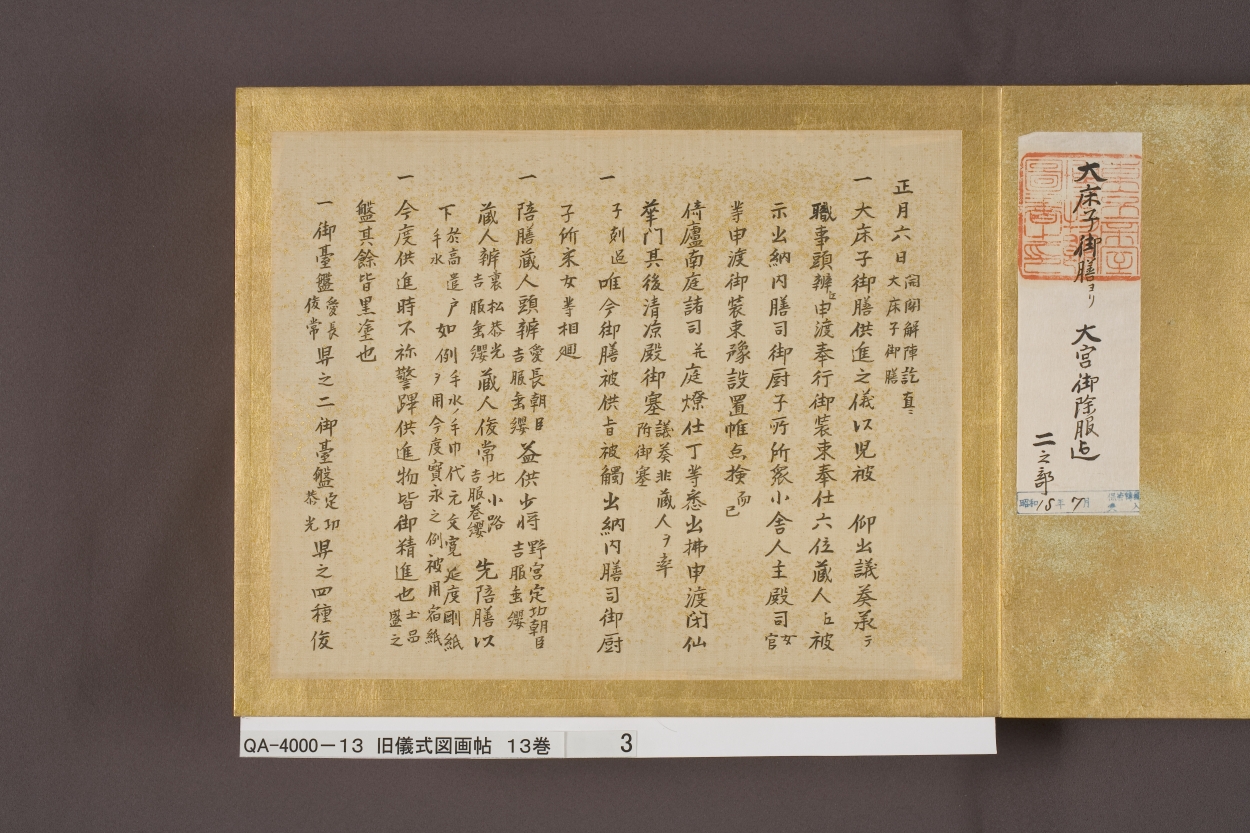 大床子御膳ヨリ 大宮御除服迄
二之部
昭和15年7月
正月六日 関解陣訖直ニ大床子御膳
一 大床子御膳供進之儀以児被 仰出議奏承テ
職事頭辨申渡奉行御装束奉仕六位蔵人江被
示出納内膳司御厨子所所衆小舎人主殿司女官
等申渡御装束豫設置帷点検而已
倚廬南庭諸司并庭燎仕丁等悉出拂申渡閉仙
華門其後清凉殿御塞議奏非蔵人ヲ率附御塞
一 子刻迠唯今御膳被供旨被觸出納内膳司御厨
子所采女等相廻
一 陪膳蔵人頭辨愛長朝臣吉服垂纓益供少将野宮定功朝臣吉服垂纓
蔵人辨裏松恭光吉服垂纓蔵人俊常北小路吉服巻纓 先陪膳以
下於高遣戸手水如例手水ノ手巾代元文寛延度剛紙ヲ用今度寳永之例被用宿紙
一 今度供進時不称警蹕供進物皆御精進也士品盛之
盤其餘皆黒塗也
一 御臺盤愛長俊常舁之二御臺盤定功恭光舁之四種俊
QA-4000-13 旧儀式図画帖 13巻 3